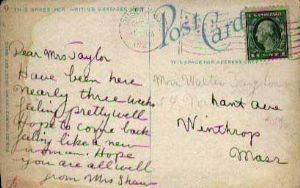 THIS SPACE FOR WRITING MESSAGES
Post Card
THIS SPACE FOR ADDRESS ONLY
Dear Mrs Taylor
Have been here
nearly three weeks
feeling pretty well
Hope to come back
feeling like a new
woman. Hope
you are all well
from Mrs Shaw
Mrs Walter Taylor
Ave
Winthrop
Mass